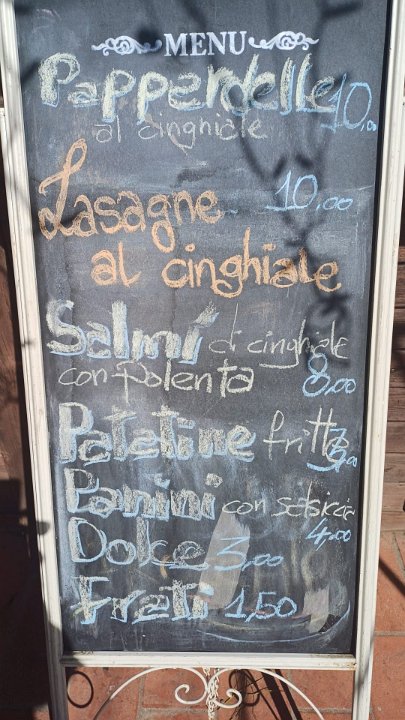 MENU
Pappardelle 10,00
al cinghiale
Lasagne 10,00
al cinghiale
Salmí di cinghiale
con polenta 8,00
Patatine fritte 3,00
Panini con salsiccia
4,00
Dolce 3,00
Frati 1,50